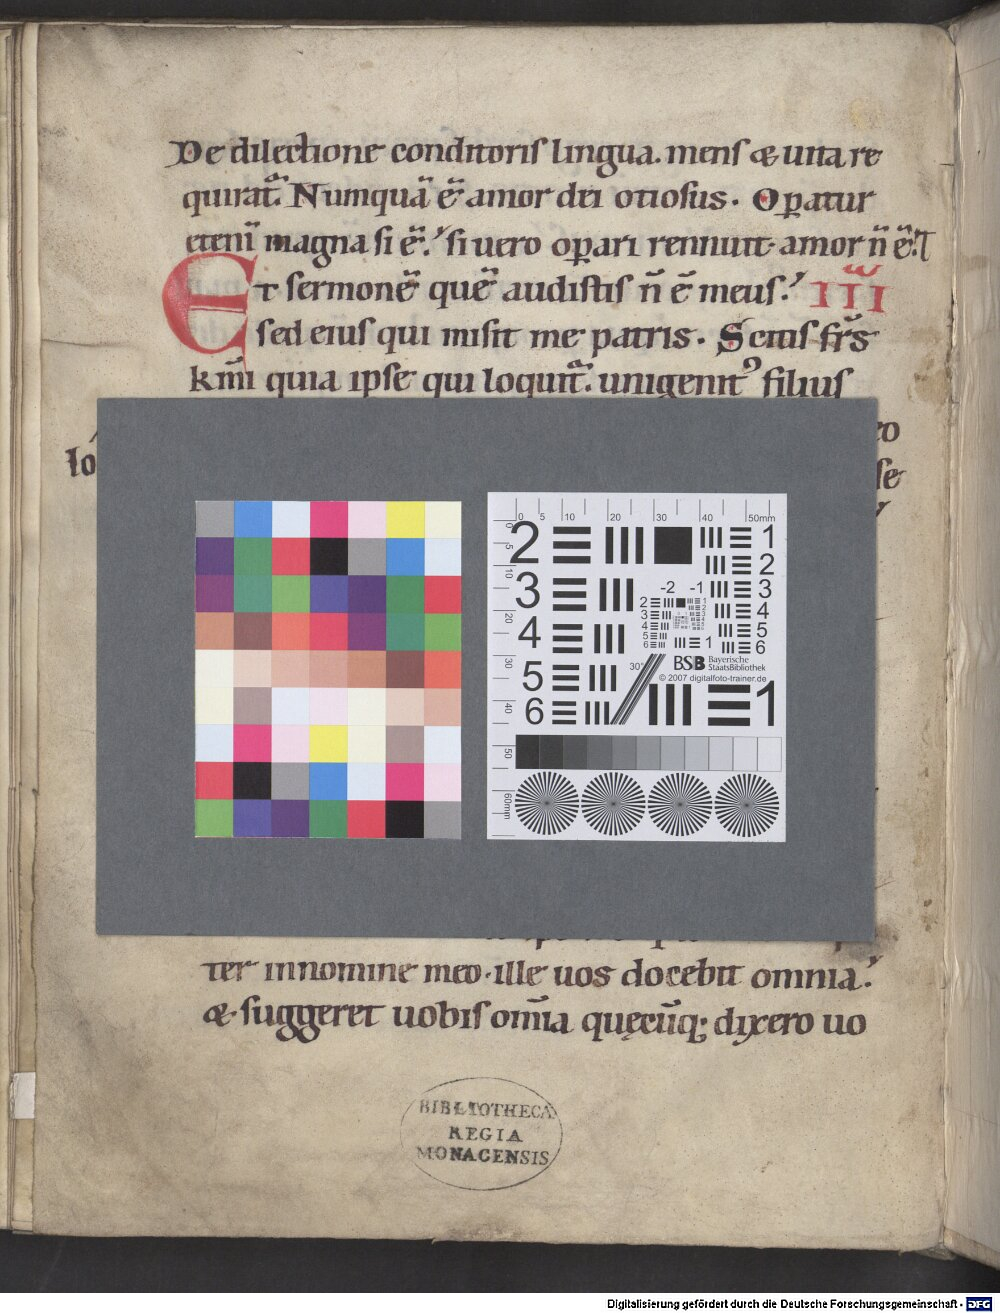 De dilectione conditoris lingua. mens & uita re
quirat᷑. Numquā ē amor dei otiosus. Opatur
etenī magna si ē. si uero opari rennuit amor n̄ ē.
Et sermonē quē audistis n̄ ē meus. III
sed eius qui misit me patris. Scitis frs̄
km̄i quia ipse qui loquit᷑. unigenitꝰ filius
eo
lo
se
ter in nomine meo. ille uos docebit omnia.
& suggeret uobis om̄ia quęcūq; dixero uo
0 5 10 20 30 40 50mm
0 5 10 20 30 40 50 60mm
2 1
2
3 3
4 4
5 5
6 6
1
-2 -1
2 1
3 2
4 3
5 4
6 5
6
1
30°
BSB Bayerische
StaatsBibliothek
© 2007 digitalfoto-trainer.de
BIBLIOTHECA
REGIA
MONACENSIS
Digitalisierung gefördert durch die Deutsche Forschungsgemeinschaft - DFG